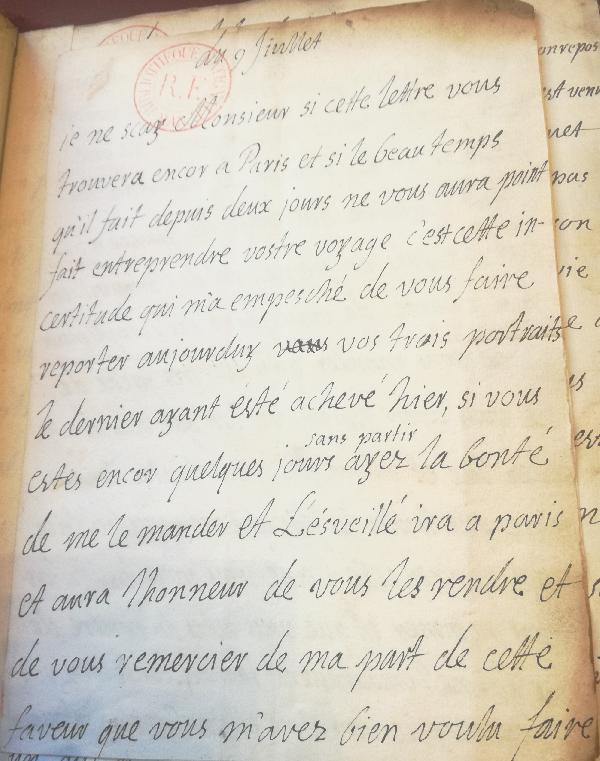 du 9 Juillet
BIBLIOTHEQUE
R.F
je ne scay Monsieur si cette lettre vous
trouvera encor a Paris et si le beau temps
qu'il fait depuis deux jours ne vous aura point
fait entreprendre vostre voyage c'est cette in-
certitude qui m'a empesché de vous faire
reporter aujourduy vos trois portraits
le dernier ayant ésté achevé hier, si vous
sans partir
estes encor quelques jours ayez la bonté
de me le mander et L'ésveillé ira a paris
et aura lhonneur de vous les rendre et
de vous remercier de ma part de cette
faveur que vous m'avez bien voulu faire